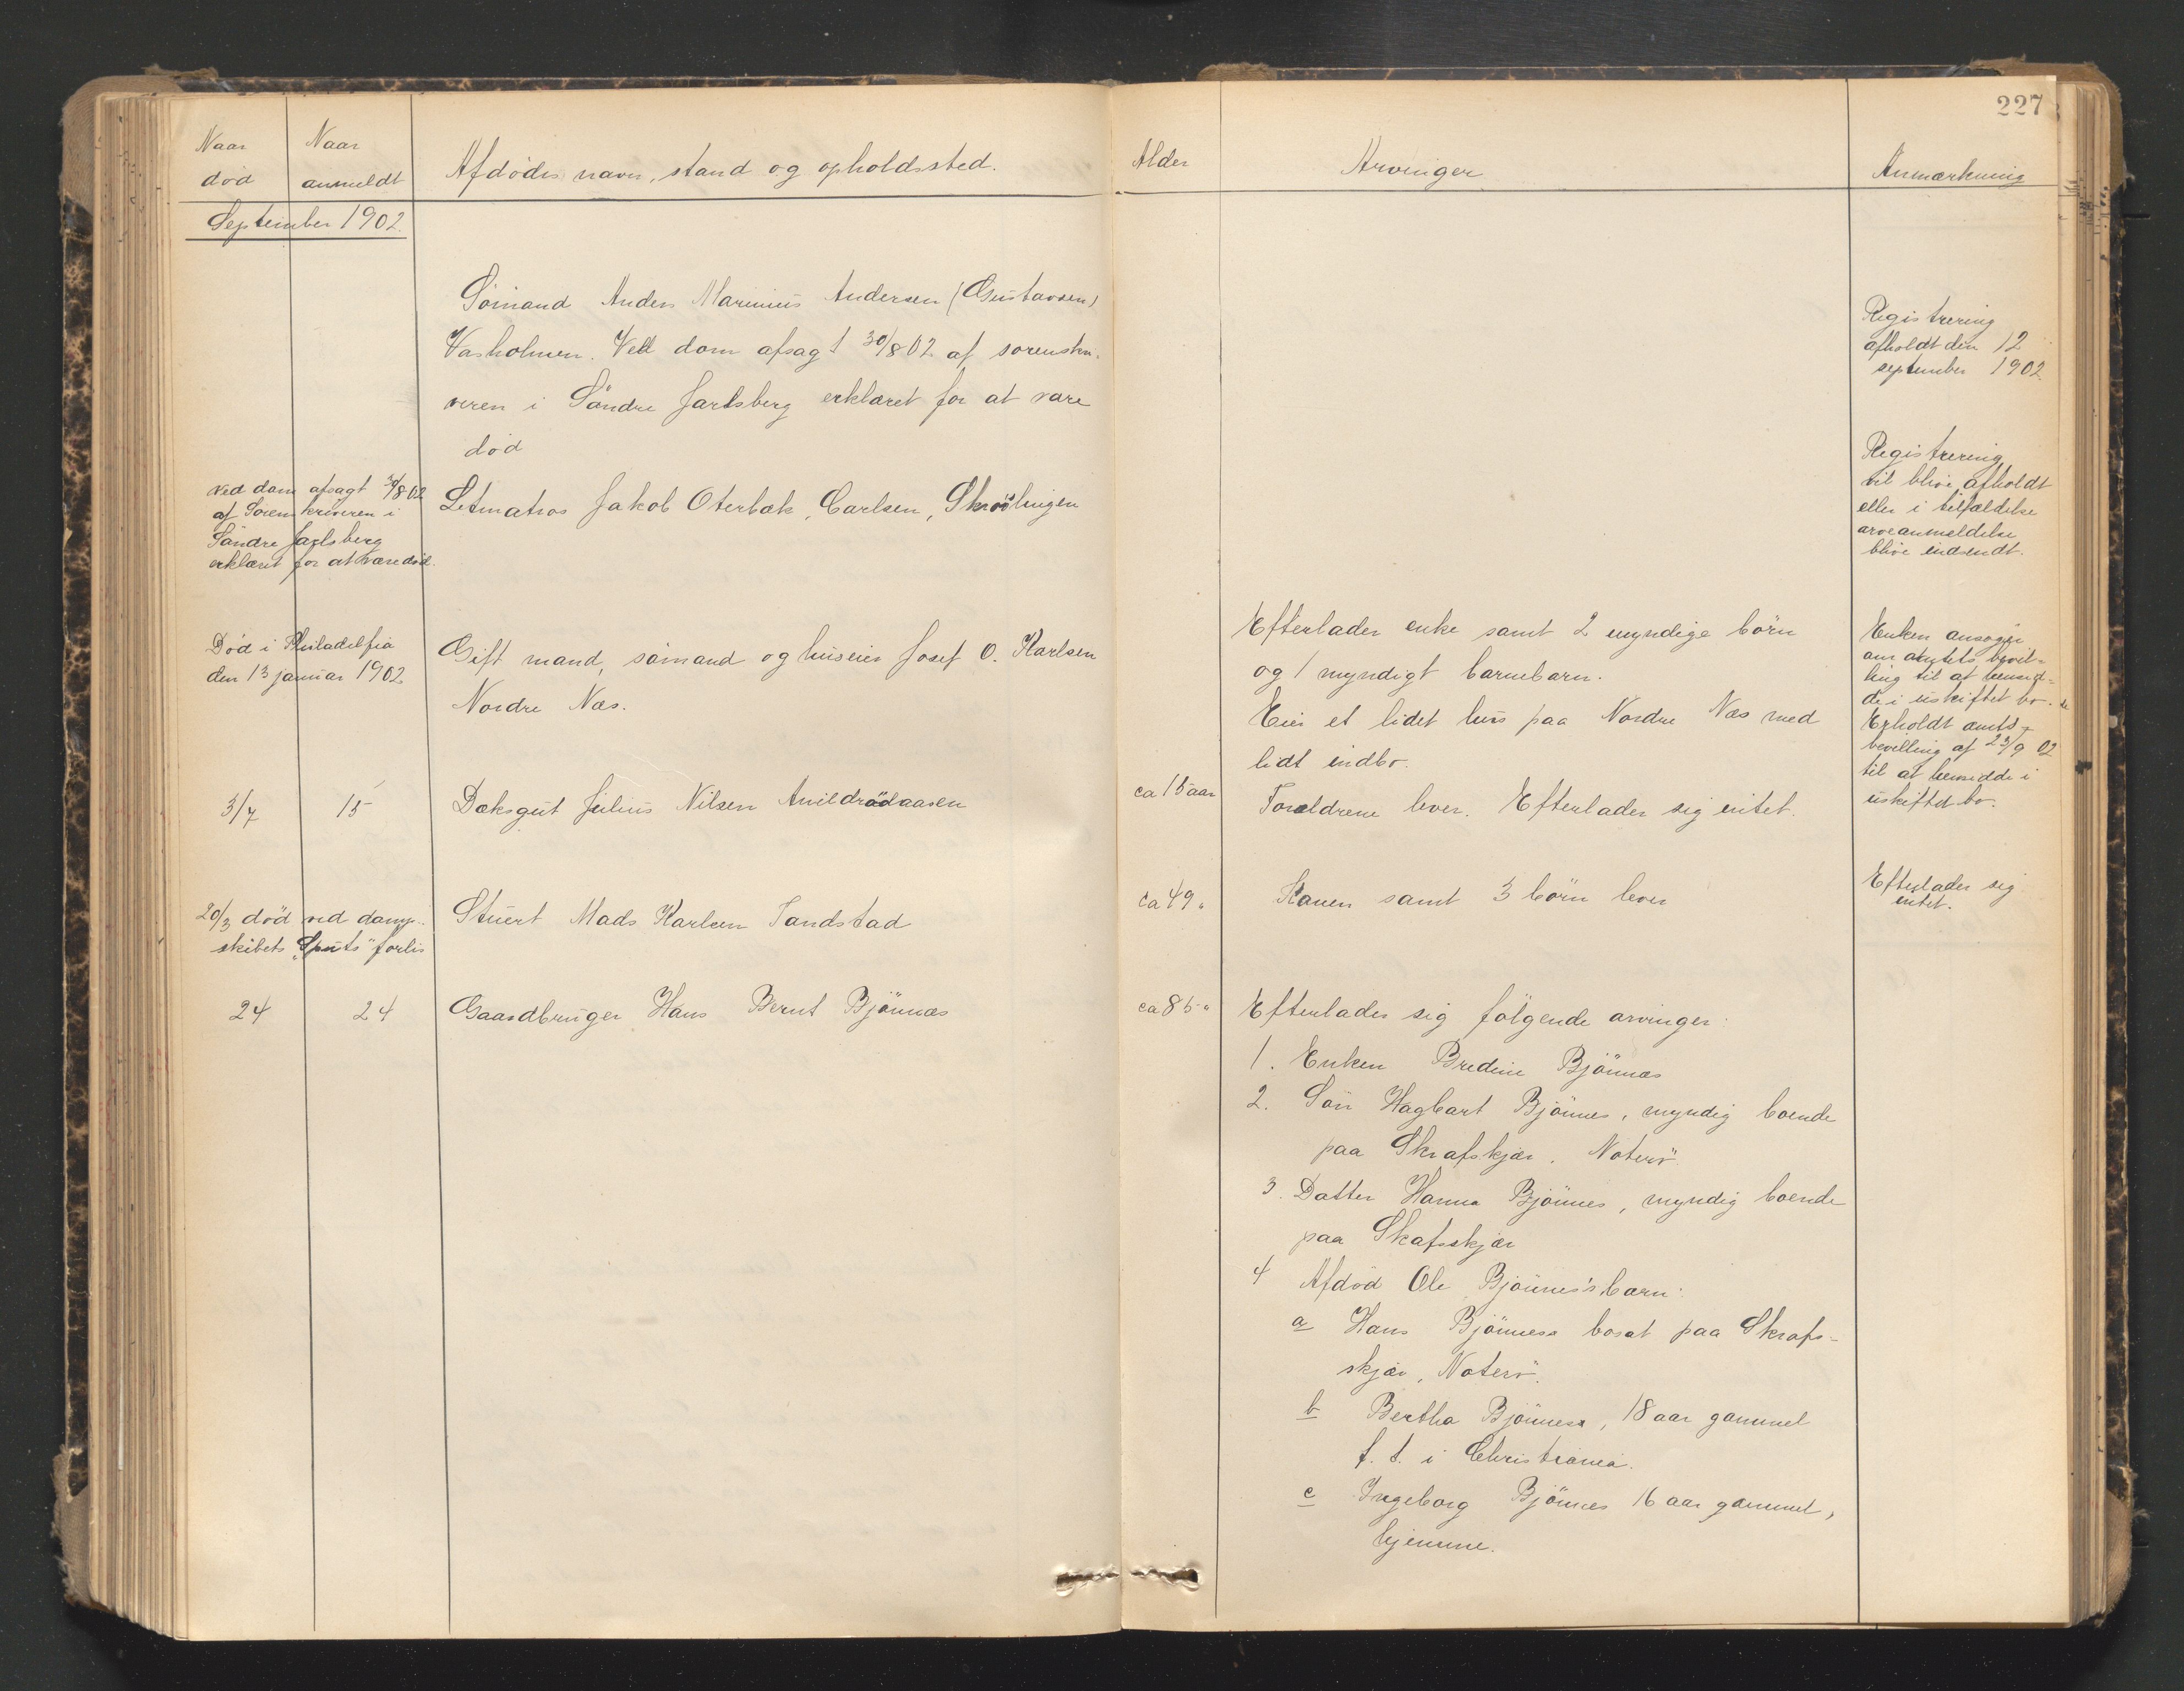 227
Naar død
Naar anmeldt
Afdødes navn, stand og opholdssted.
Alder
Arvinger
Anmærkning
September 1902.
Sömand Anders Marinius Andersen (Gustavsen)
Vasholmen. Ved dom afsagt 30/8 02 af sorenskri-
veren i Söndre Jarlsberg erklæret for at være
död
Registrering
afholdt den 12
september 1902.
Ved dom afsagt 30/8 02
af Sorenskriveren i
Söndre Jarlsberg
erklæret for at være död.
Letmatros Jakob Oterbæk, Carlsen, Skrölingen
Registrering
vil blive afholdt
eller i tilfældelse
arveanmeldelse
blive indsendt.
Død i Philadelfia
den 13 januar 1902
Gift mand, sömand og huseier Josef O. Karlsen
Nordre Næs.
Efterlader enke samt 2 myndige börn
og 1 myndigt barnebarn.
Eier et lidet hus paa Nordre Næs med
lidt indbo.
Enken ansøger
om amtets bevil-
ling til at hensid-
de i uskiftet bo.
Erholdt amts-
bevilling af 23/9 02
til at hensidde i
uskiftet bo.
3/7
15
Dæksgut Julius Nilsen Anildrödaasen
ca 15 aar
Forældrene lever. Efterlader sig intet.
20/3 död ved damp-
skibets "Sputs" forlis
Stuert Mads Karlsen Sandstad
ca 49 "
Konen samt 3 börn lever
Efterlader sig
intet.
24
24
Gaardbruger Hans Bernt Bjönnæs
ca 85 "
Efterlader sig fölgende arvinger:
1. Enken Bredine Bjönnæs
2. Sön Hagbart Bjönnes, myndig boende
paa Skrafskjær. Noterö
3. Datter Hanna Bjönnes, myndig boende
paa Skafsskjær
4 Afdöd Ole Bjönnes's barn:
a Hans Bjönness bosat paa Skrafs-
skjær, Noterö.
b Bertha Bjönness, 18 aar gammel
f. t. i Christiania.
c Ingeborg Bjönnes 16 aar gammel,
hjemme.